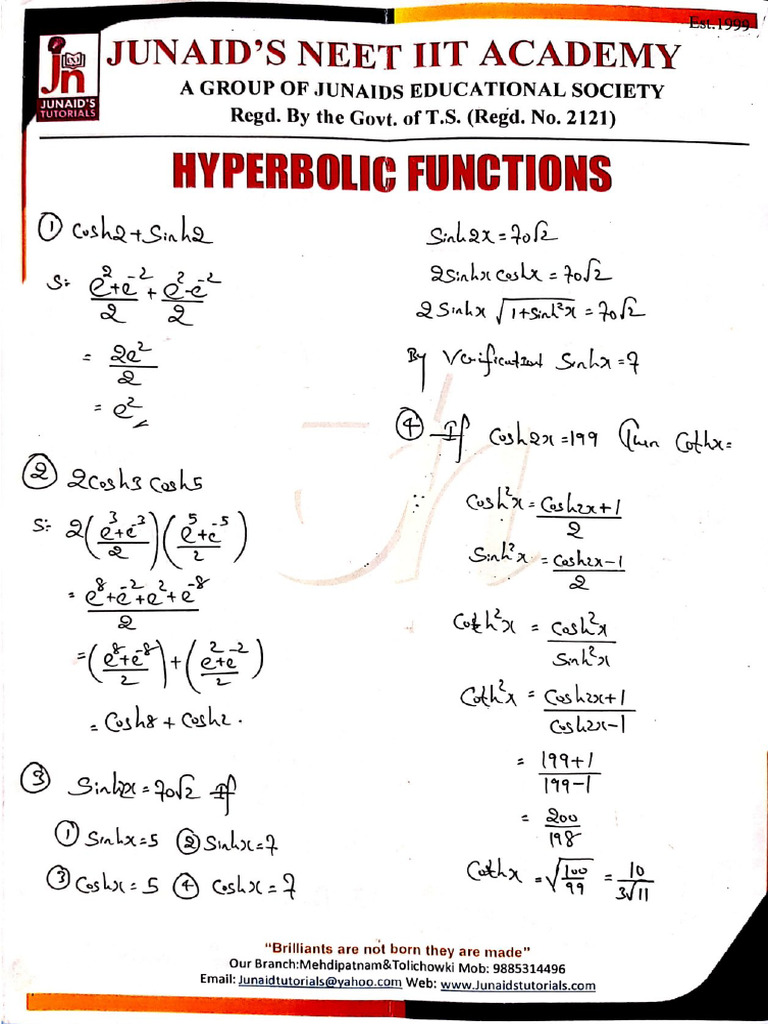 Est.1999
Jn
JUNAID'S
TUTORIALS
JUNAID'S NEET IIT ACADEMY
A GROUP OF JUNAIDS EDUCATIONAL SOCIETY
Regd. By the Govt. of T.S. (Regd. No. 2121)
HYPERBOLIC FUNCTIONS
① Cosh2 + Sinh2
S:- (e^2+e^-2)/2 + (e^2-e^-2)/2
= 2e^2/2
= e^2
② 2Cosh3 Cosh5
S:- 2((e^3+e^-3)/2)((e^5+e^-5)/2)
= (e^8+e^-2+e^2+e^-8)/2
= ((e^8+e^-8)/2) + ((e^2+e^-2)/2)
= Cosh8 + Cosh2.
③ Sinh2x = 70√2 If
① Sinhx = 5 ② Sinhx = 7
③ Coshx = 5 ④ Coshx = 7
Sinh2x = 70√2
2Sinhx coshx = 70√2
2Sinhx √(1+Sinh^2x) = 70√2
By Verification Sinhx = 7
④ If Cosh2x = 199 Then Cothx =
∵ Cosh^2x = (Cosh2x+1)/2
Sinh^2x = (Cosh2x-1)/2
Coth^2x = Cosh^2x/Sinh^2x
Coth^2x = (Cosh2x+1)/(Cosh2x-1)
= (199+1)/(199-1)
= 200/198
Cothx = √(100/99) = 10/(3√11)
"Brilliants are not born they are made"
Our Branch:Mehdipatnam&Tolichowki Mob: 9885314496
Email: Junaidtutorials@yahoo.com Web: www.Junaidstutorials.com